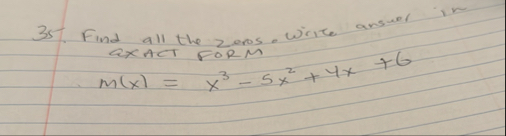 35. Find all the zeros. Write answer in
EXACT FORM
m(x) = x³ - 5x² + 4x + 6